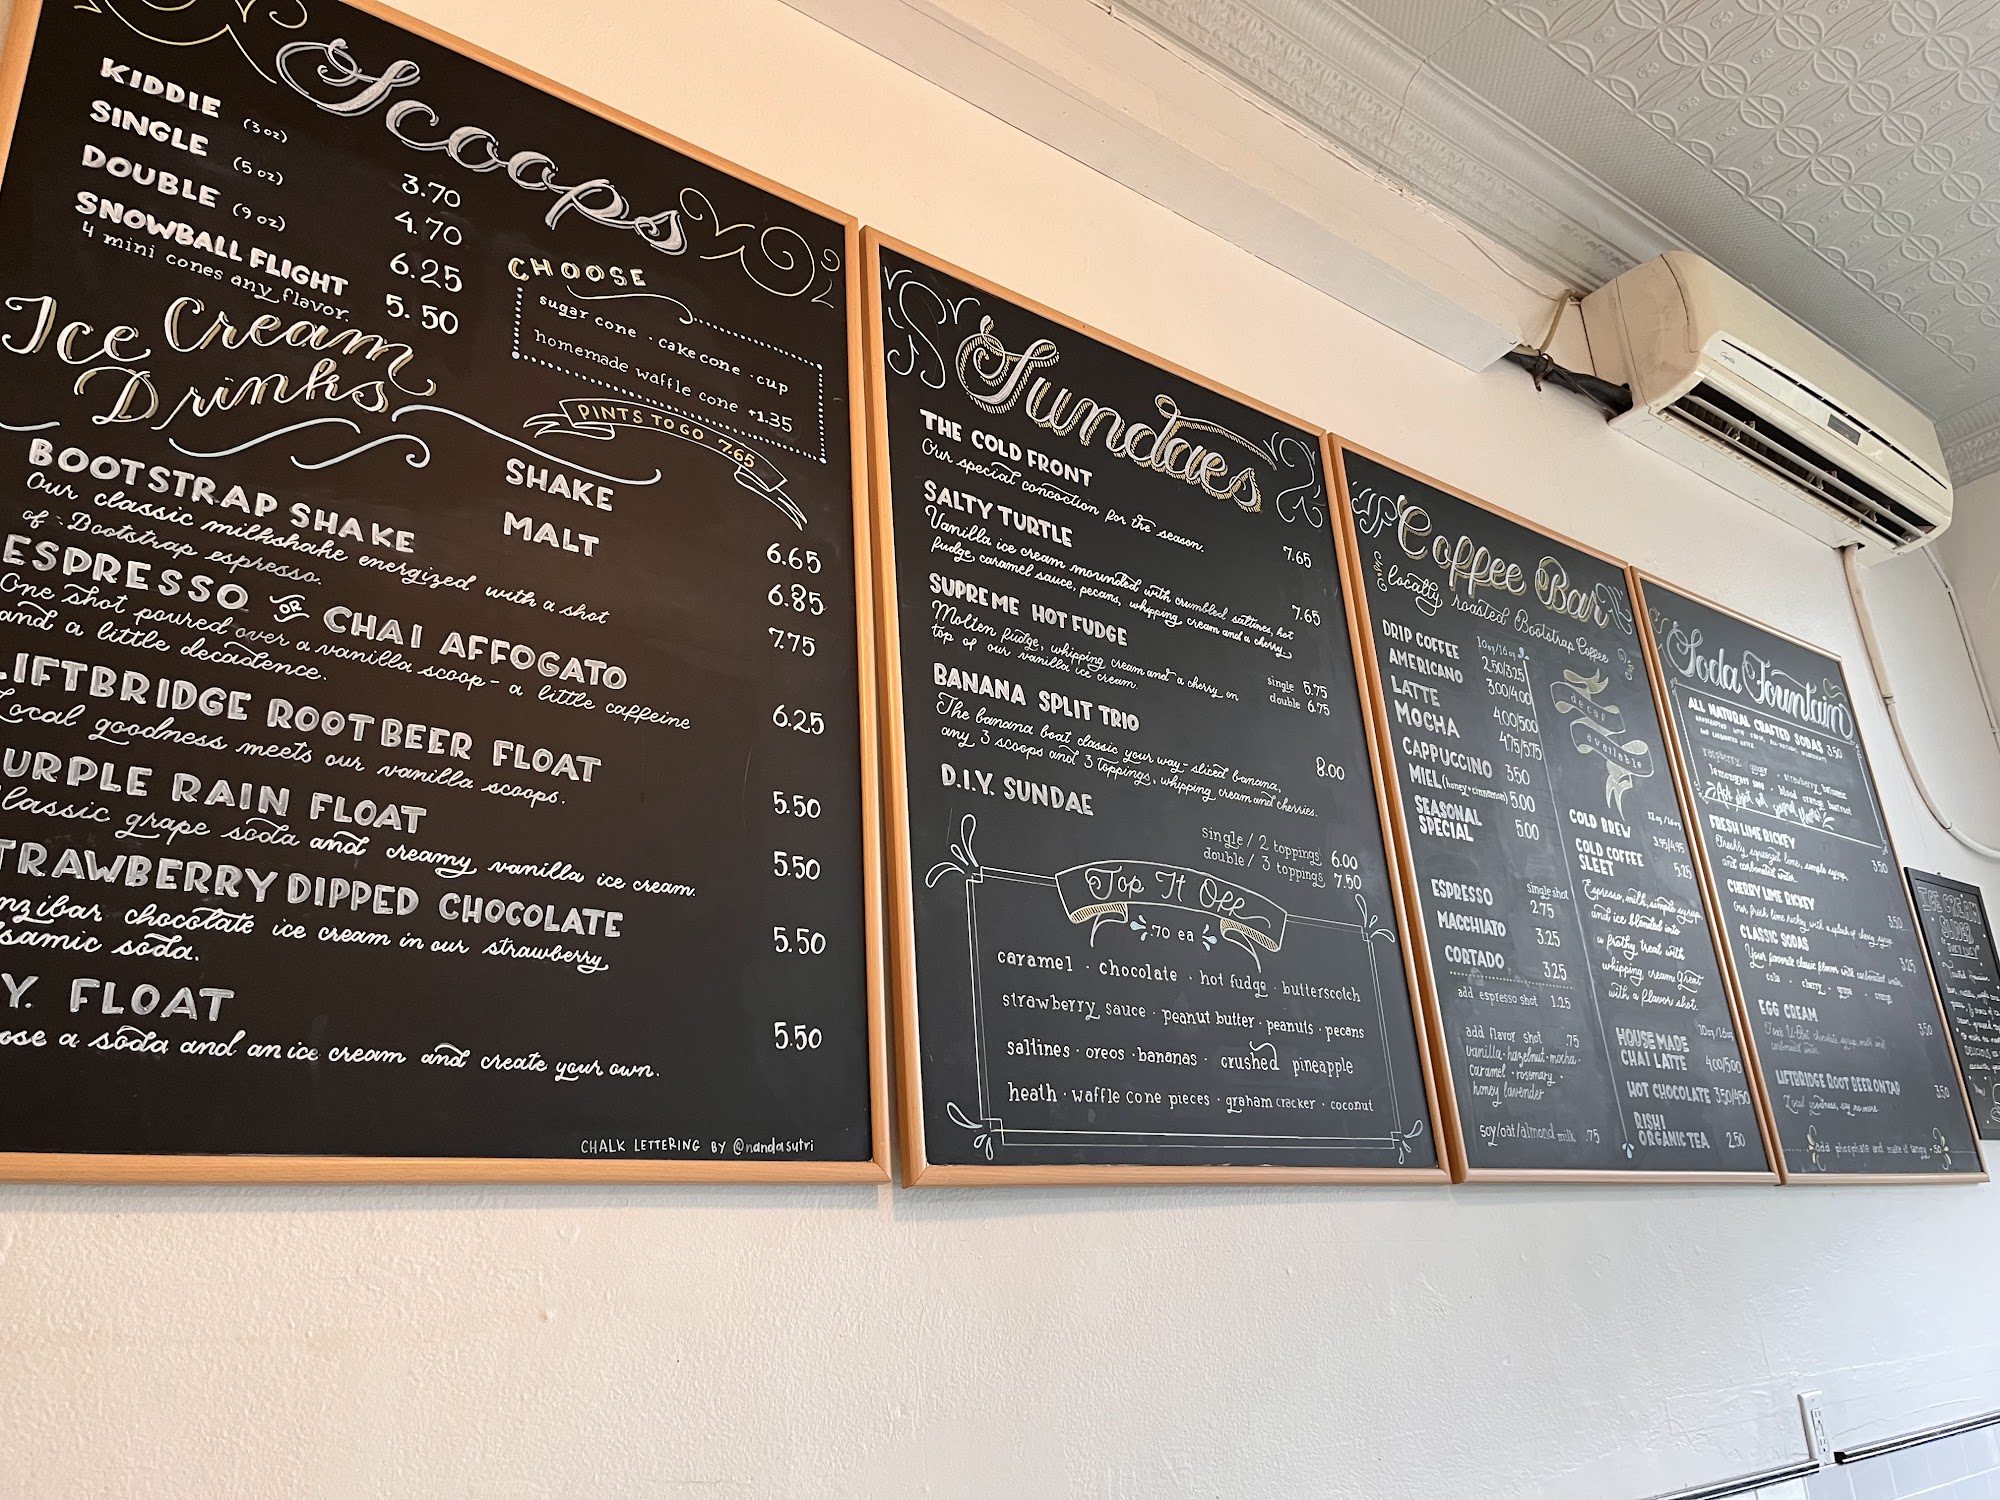 Scoops
KIDDIE (3 oz) 3.70
SINGLE (5 oz) 4.70
DOUBLE (9 oz) 6.25
SNOWBALL FLIGHT 5.50
4 mini cones any flavor.
CHOOSE
sugar cone · cake cone · cup
homemade waffle cone +1.35
PINTS TO GO 7.65
Ice Cream
Drinks
SHAKE 6.65
MALT 6.85
BOOTSTRAP SHAKE 7.75
Our classic milkshake energized with a shot
of Bootstrap espresso.
ESPRESSO OR CHAI AFFOGATO 6.25
One shot poured over a vanilla scoop - a little caffeine
and a little decadence.
LIFTBRIDGE ROOT BEER FLOAT 5.50
Local goodness meets our vanilla scoops.
URPLE RAIN FLOAT 5.50
lassic grape soda and creamy vanilla ice cream.
TRAWBERRY DIPPED CHOCOLATE 5.50
nzibar chocolate ice cream in our strawberry
lsamic soda.
Y. FLOAT 5.50
ose a soda and an ice cream and create your own.
CHALK LETTERING BY @nandasutri
Sundaes
THE COLD FRONT 7.65
Our special concoction for the season.
SALTY TURTLE 7.65
Vanilla ice cream mounded with crumbled saltines, hot
fudge, caramel sauce, pecans, whipping cream and a cherry
SUPREME HOT FUDGE
Molten fudge, whipping cream and a cherry on single 5.75
top of our vanilla ice cream. double 6.75
BANANA SPLIT TRIO 8.00
The banana boat classic your way - sliced banana,
any 3 scoops and 3 toppings, whipping cream and cherries.
D.I.Y. SUNDAE
single / 2 toppings 6.00
double / 3 toppings 7.50
Top It Off
.70 ea
caramel · chocolate · hot fudge · butterscotch
strawberry sauce · peanut butter · peanuts · pecans
saltines · oreos · bananas · crushed pineapple
heath · waffle cone pieces · graham cracker · coconut
Coffee Bar
locally roasted Bootstrap Coffee
10oz/16oz
DRIP COFFEE 2.50/3.25
AMERICANO 3.00/4.00
LATTE 4.00/5.00
MOCHA 4.75/5.75
CAPPUCCINO 3.50
MIEL (honey + cinnamon) 5.00
SEASONAL
SPECIAL 5.00
single shot
ESPRESSO 2.75
MACCHIATO 3.25
CORTADO 3.25
add espresso shot 1.25
add flavor shot .75
vanilla · hazelnut · mocha ·
caramel · rosemary ·
honey lavender
soy/oat/almond milk .75
decaf
available
12oz/16oz
COLD BREW 3.95/4.95
COLD COFFEE
SLEET 5.25
Espresso, milk, simple syrup,
and ice blended into
a frothy treat with
whipping cream. Great
with a flavor shot.
10oz/16oz
HOUSE MADE
CHAI LATTE 4.00/5.00
HOT CHOCOLATE 3.50/4.50
RISHI
ORGANIC TEA 2.50
Soda Fountain
ALL NATURAL CRAFTED SODAS 3.50
FRESH LIME RICKEY 3.50
Freshly squeezed lime, simple syrup,
and carbonated water.
CHERRY LIME RICKEY 3.50
Our fresh lime rickey with a splash of cherry syrup
CLASSIC SODAS 3.25
Your favorite classic flavors with carbonated water.
cola · cherry · grape · orange
EGG CREAM 3.50
chocolate syrup, milk and
carbonated water.
LIFTBRIDGE ROOT BEER ON TAP 3.50
Local goodness, say no more
add phosphate and make it tangy .50